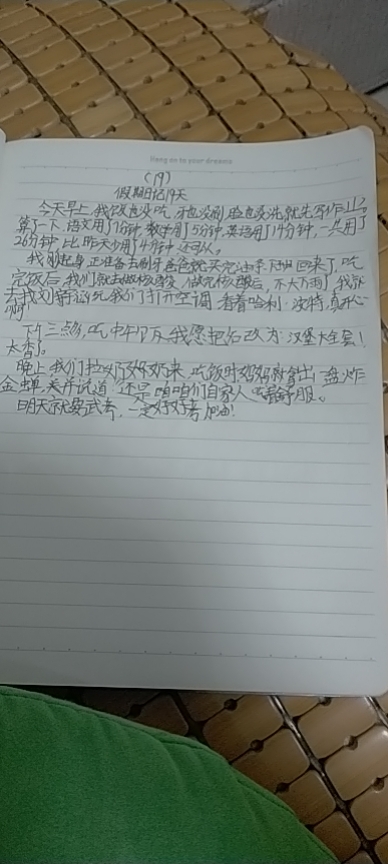 Hang on to your dreams
(19)
假期日记19天
今天早上,我饭也没吃,牙也没刷,脸也没洗,就先写作业。
算了一下,语文用了7分钟,数学用了5分钟,英语用了14分钟,一共用了
26分钟,比昨天少用了4分钟,还可以。
我刚起身正准备去刷牙爸爸就买完油条回来了,吃
完饭后,我们就去做核酸,做完核酸后,下大雨了,我就
去找刘轩,我们打开空调,看着哈利·波特,真开心
啊!
下午三点,吃中午饭,我愿把名改为:汉堡大全套!
太香了。
晚上我们拉奶奶来,吃饭时妈妈就拿出一盘炸
金蝉,并说道,还是咱们自家人吃着舒服。
明天就要武考,一定好好考,加油!